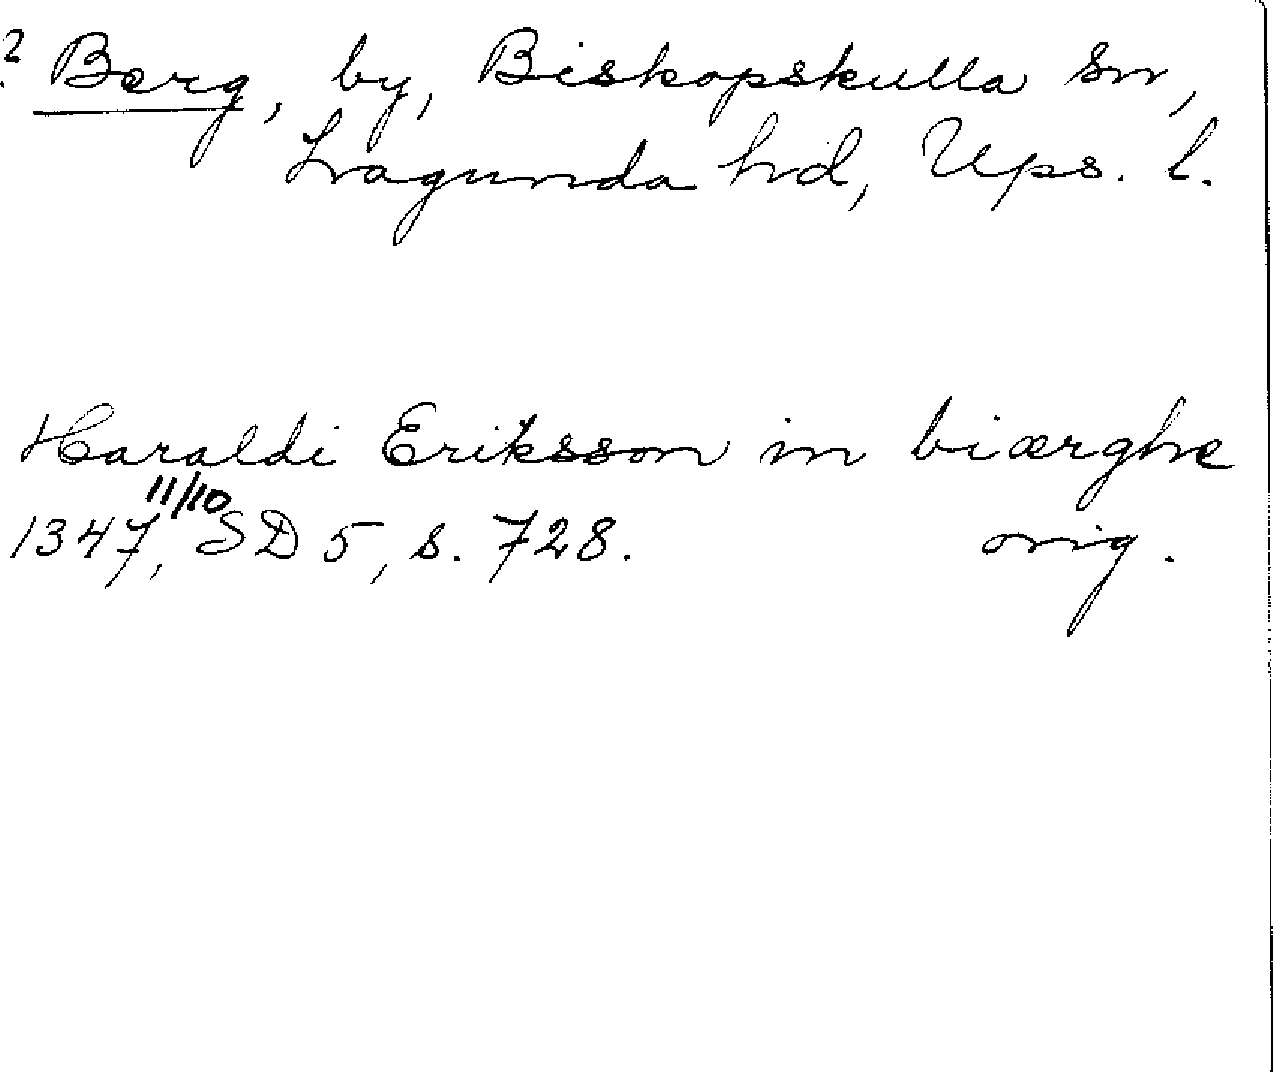 ? Berg, by, Biskopskulla sn,
Lagunda hd, Ups. l.
Haraldi Eriksson in biærghe
11/10
1347, SD 5, s. 728. orig.